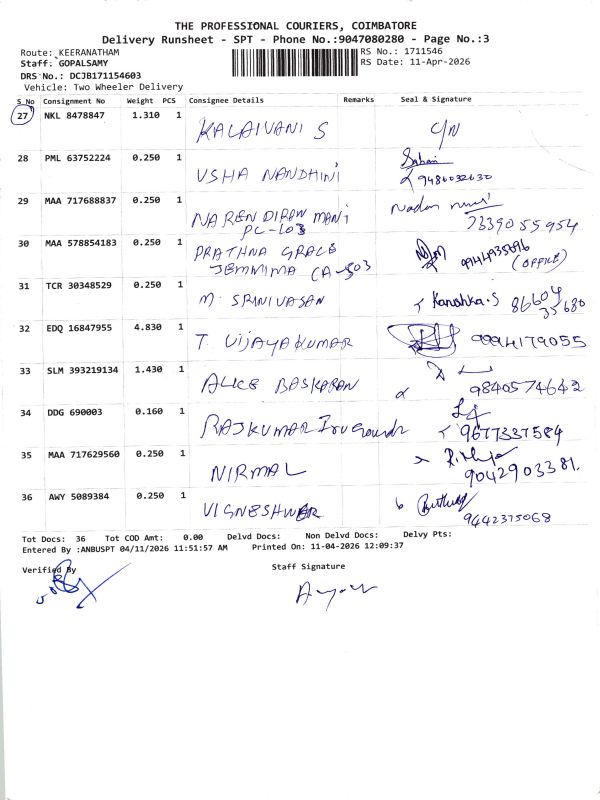 THE PROFESSIONAL COURIERS, COIMBATORE
Delivery Runsheet - SPT - Phone No.:9047080280 - Page No.:3
Route: KEERANATHAM
RS No.: 1711546
Staff: GOPALSAMY
RS Date: 11-Apr-2026
DRS No.: DCJB171154603
Vehicle: Two Wheeler Delivery
S_No Consignment No Weight PCS Consignee Details Remarks Seal & Signature
27 NKL 8478847 1.310 1 KALAIVANI S C/N
28 PML 63752224 0.250 1 USHA NANDHINI
9486032630
29 MAA 717688837 0.250 1 NAREN DIRAN MANI
PC-103 7339055954
30 MAA 578854183 0.250 1 PRATHNA GRACE
JEMMIMA CA-503 (OFFICE)
31 TCR 30348529 0.250 1 M. SRINIVASAN Kanishka.S 86604
35680
32 EDQ 16847955 4.830 1 T. VIJAYAKUMAR 9994179055
33 SLM 393219134 1.430 1 ALICE BASKARAN 9840574642
34 DDG 690003 0.160 1 RAJKUMAR 9677337584
35 MAA 717629560 0.250 1 NIRMAL 9042903381.
36 AWY 5089384 0.250 1 VIGNESHWER
9442375068
Tot Docs: 36 Tot COD Amt: 0.00 Delvd Docs: Non Delvd Docs: Delvy Pts:
Entered By :ANBUSPT 04/11/2026 11:51:57 AM Printed On: 11-04-2026 12:09:37
Verified By Staff Signature